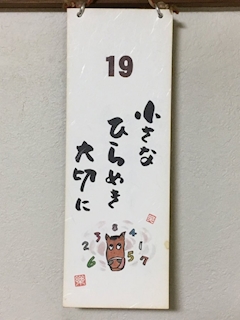 19
小さな
ひらめき
大切に
2 3 8 4 1
6 5 7